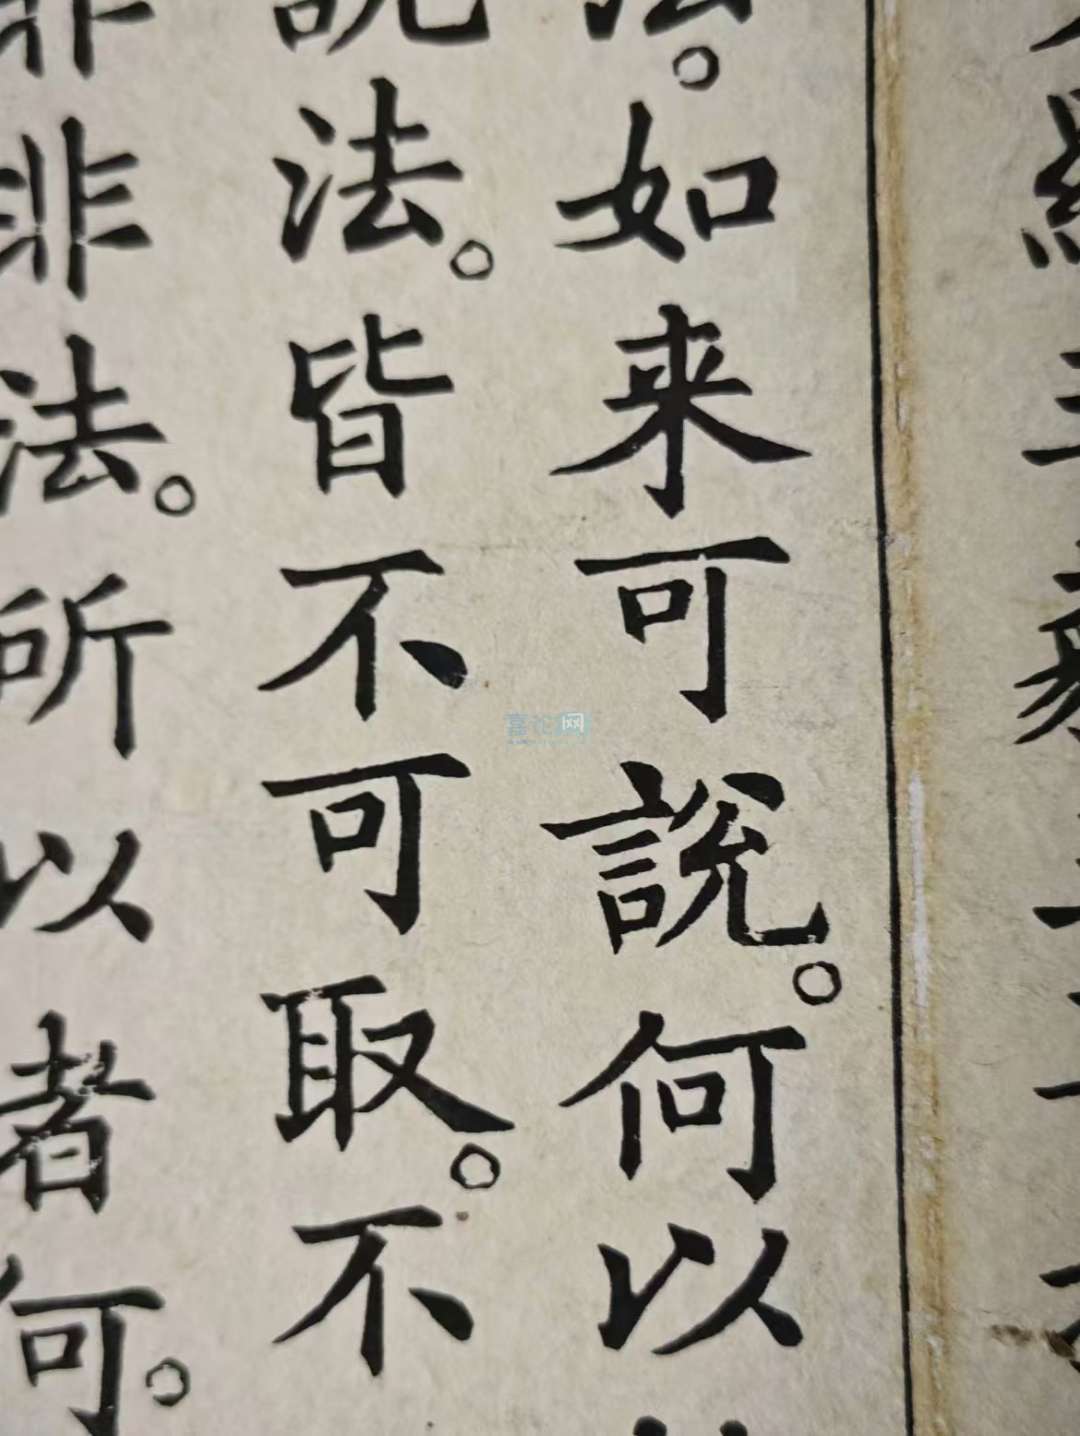 法。如来可說。何以
說法。皆不可取。不
非非法。所以者何。